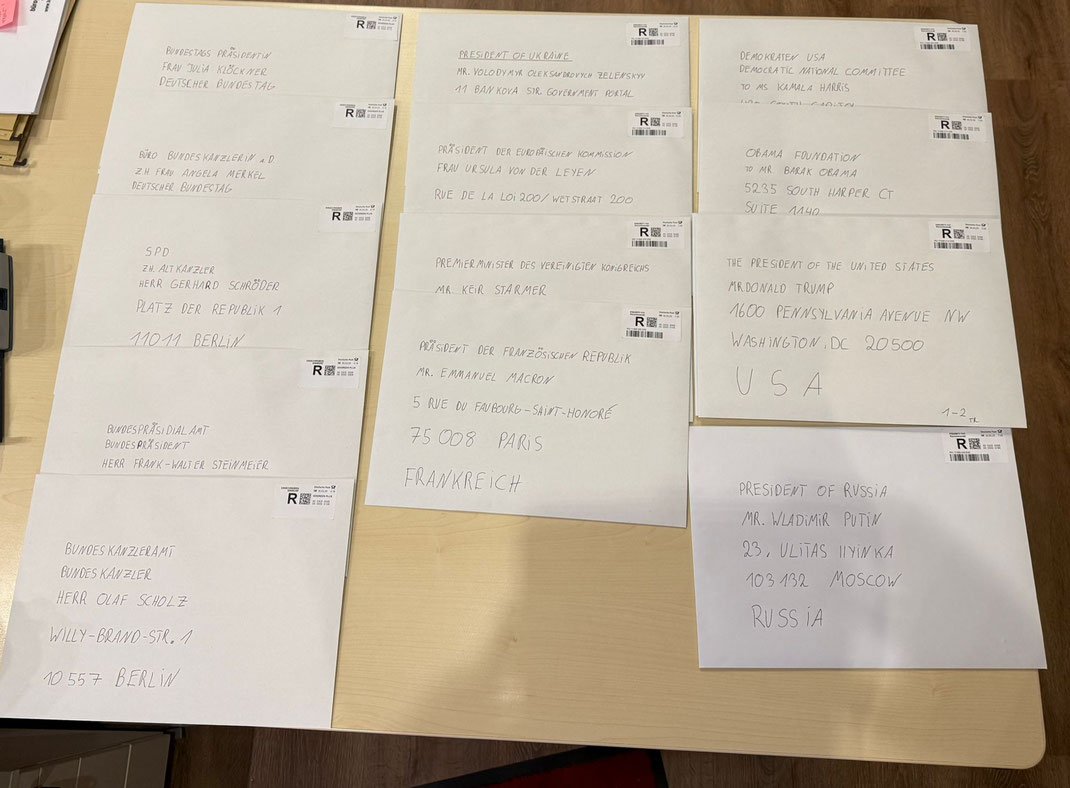 BUNDESTAGS PRÄSIDENTIN
FRAU JULIA KLÖCKNER
DEUTSCHER BUNDESTAG
R
BÜRO BUNDESKANZLERIN a.D
ZH FRAU ANGELA MERKEL
DEUTSCHER BUNDESTAG
R
SPD
ZH. ALTKANZLER
HERR GERHARD SCHRÖDER
PLATZ DER REPUBLIK 1
11011 BERLIN
R
BUNDESPRÄSIDIALAMT
BUNDESPRÄSIDENT
HERR FRANK-WALTER STEINMEIER
R
BUNDESKANZLERAMT
BUNDESKANZLER
HERR OLAF SCHOLZ
WILLY-BRAND-STR. 1
10557 BERLIN
R
PRESIDENT OF UKRAINE
MR. VOLODYMYR OLEKSANDROVYCH ZELENSKYY
11 BANKOVA STR. GOVERNMENT PORTAL
R
PRÄSIDENT DER EUROPÄISCHEN KOMMISSION
FRAU URSULA VON DER LEYEN
RUE DE LA LOI 200/ WETSTRAAT 200
R
PREMIERMINISTER DES VEREINIGTEN KÖNIGREICHS
MR. KEIR STARMER
R
PRÄSIDENT DER FRANZÖSISCHEN REPUBLIK
MR. EMMANUEL MACRON
5 RUE DU FAUBOURG-SAINT-HONORÉ
75008 PARIS
FRANKREICH
R
DEMOKRATEN USA
DEMOCRATIC NATIONAL COMMITTEE
TO MS KAMALA HARRIS
R
OBAMA FOUNDATION
TO MR BARAK OBAMA
5235 SOUTH HARPER CT
SUITE 1140
R
THE PRESIDENT OF THE UNITED STATES
MR DONALD TRUMP
1600 PENNSYLVANIA AVENUE NW
WASHINGTON, DC 20500
USA
1-2
R
PRESIDENT OF RUSSIA
MR. WLADIMIR PUTIN
23, ULITAS IIYINKA
103132 MOSCOW
RUSSIA
R